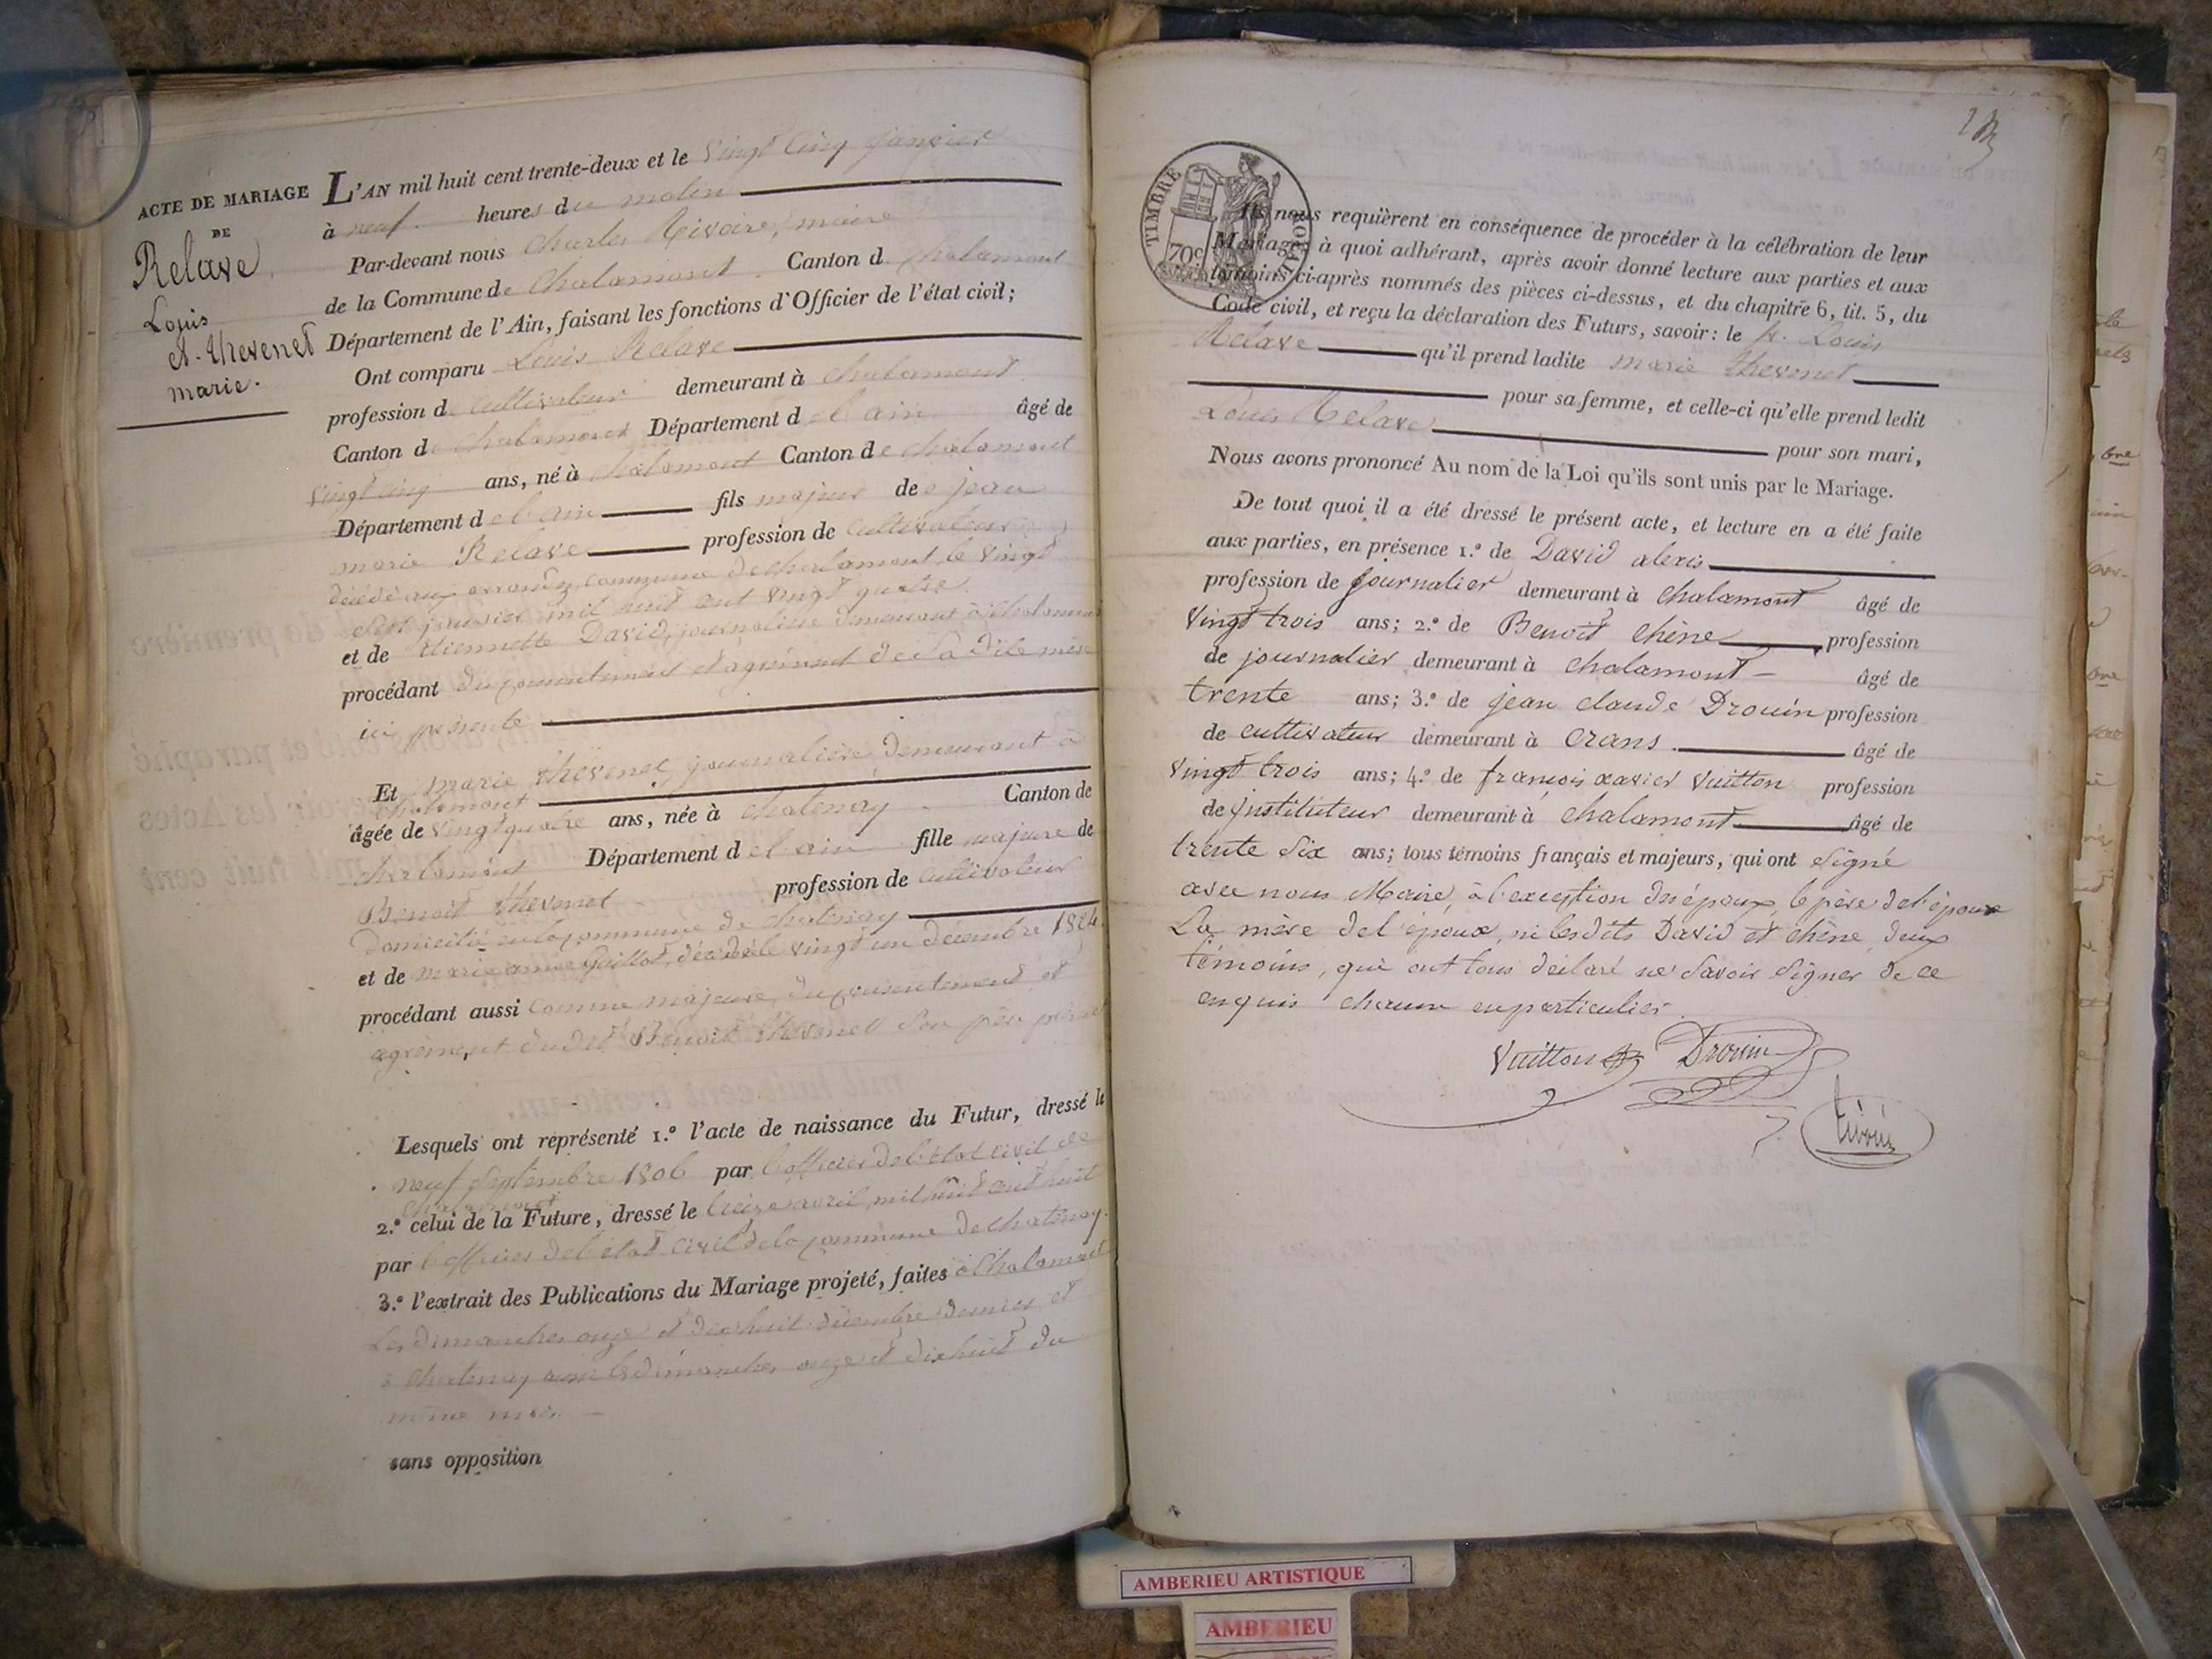 ACTE DE MARIAGE
DE
Relave
Louis
et Thevenet
marie.
L'AN mil huit cent trente-deux et le vingt cinq janvier
à neuf heures du matin
Par-devant nous Charles Rivoire, maire
de la Commune de Chalamont Canton d Chalamont
Département de l'Ain, faisant les fonctions d'Officier de l'état civil;
Ont comparu Louis Relave
profession de cultivateur demeurant à chalamont
Canton de chalamont Département del ain âgé de
vingt cinq ans, né à chalamont Canton de chalamont
Département del ain fils majeur de jean
marie Relave profession de cultivateur
décédé aux commune de chalamont le vingt
sept janvier mil huit cent vingt quatre
et de etiennette David, journalière demeurant à chalamont
procédant du consentement et agrément de Sa dite mère
ici présente
Et marie thevenet, journalière demeurant à
chalamont
âgée de vingt quatre ans, née à chatenay Canton de
chalamont Département del ain fille majeure de
Benoit thevenet profession de cultivateur
domicilié en la commune de chatenay
et de marie anne guillot, décédée le vingt un décembre 1824
procédant aussi comme majeure, du consentement et
agrément du dit Benoit thevenet son père présent
Lesquels ont représenté 1.º l'acte de naissance du Futur, dressé le
neuf septembre 1806 par l'officier de l'état civil de
chalamont
2.º celui de la Future, dressé le treize avril mil huit cent huit
par l'officier del'état civil de la commune de chatenay.
3.º l'extrait des Publications du Mariage projeté, faites à Chalamont
Les dimanches onze et dix huit décembre dernier et
à chatenay les dimanches onze et dix huit du
même mois
sans opposition
TIMBRE ROYAL
70c
Ils nous requièrent en conséquence de procéder à la célébration de leur
Mariage; à quoi adhérant, après avoir donné lecture aux parties et aux
témoins ci-après nommés des pièces ci-dessus, et du chapitre 6, tit. 5, du
Code civil, et reçu la déclaration des Futurs, savoir: le Louis
Relave qu'il prend ladite marie thevenet
pour sa femme, et celle-ci qu'elle prend ledit
Louis Relave
pour son mari,
Nous avons prononcé Au nom de la Loi qu'ils sont unis par le Mariage.
De tout quoi il a été dressé le présent acte, et lecture en a été faite
aux parties, en présence 1.º de David alexis
profession de journalier demeurant à chalamont âgé de
vingt trois ans; 2.º de Benoit chêne profession
de journalier demeurant à chalamont âgé de
trente ans; 3.º de jean claude Drouin profession
de cultivateur demeurant à crans âgé de
vingt trois ans; 4.º de françois xavier Vuitton profession
de instituteur demeurant à chalamont âgé de
trente six ans; tous témoins français et majeurs, qui ont signé
avec nous Maire, à l'exception des époux, le père de l'épouse
La mère del'époux, ni les dits David et chêne, deux
témoins, qui ont tous déclaré ne savoir signer de ce
enquis chacun en particulier.
Vuitton Drouin
AMBERIEU ARTISTIQUE
AMBERIEU